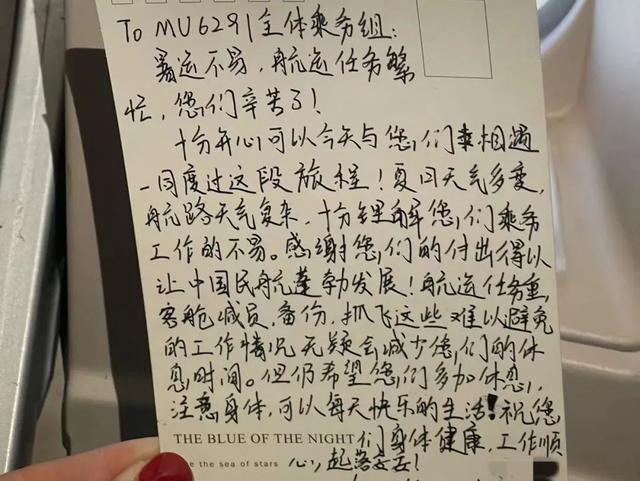 To MU6291全体乘务组:
暑运不易，航运任务繁
忙，您们辛苦了!
十分开心可以今天与您们幸相遇
一同度过这段旅程!夏日天气多变，
航路天气复杂，十分理解您们乘务
工作的不易。感谢您们的付出得以
让中国民航蓬勃发展!航运任务重，
客舱减员，备份，抓飞这些难以避免
的工作情况无疑会减少您们的休
息时间。但仍希望您们多加休息，
注意身体，可以每天快乐的生活!祝您
THE BLUE OF THE NIGHT们身体健康，工作顺
the sea of stars 心，起落安妥!